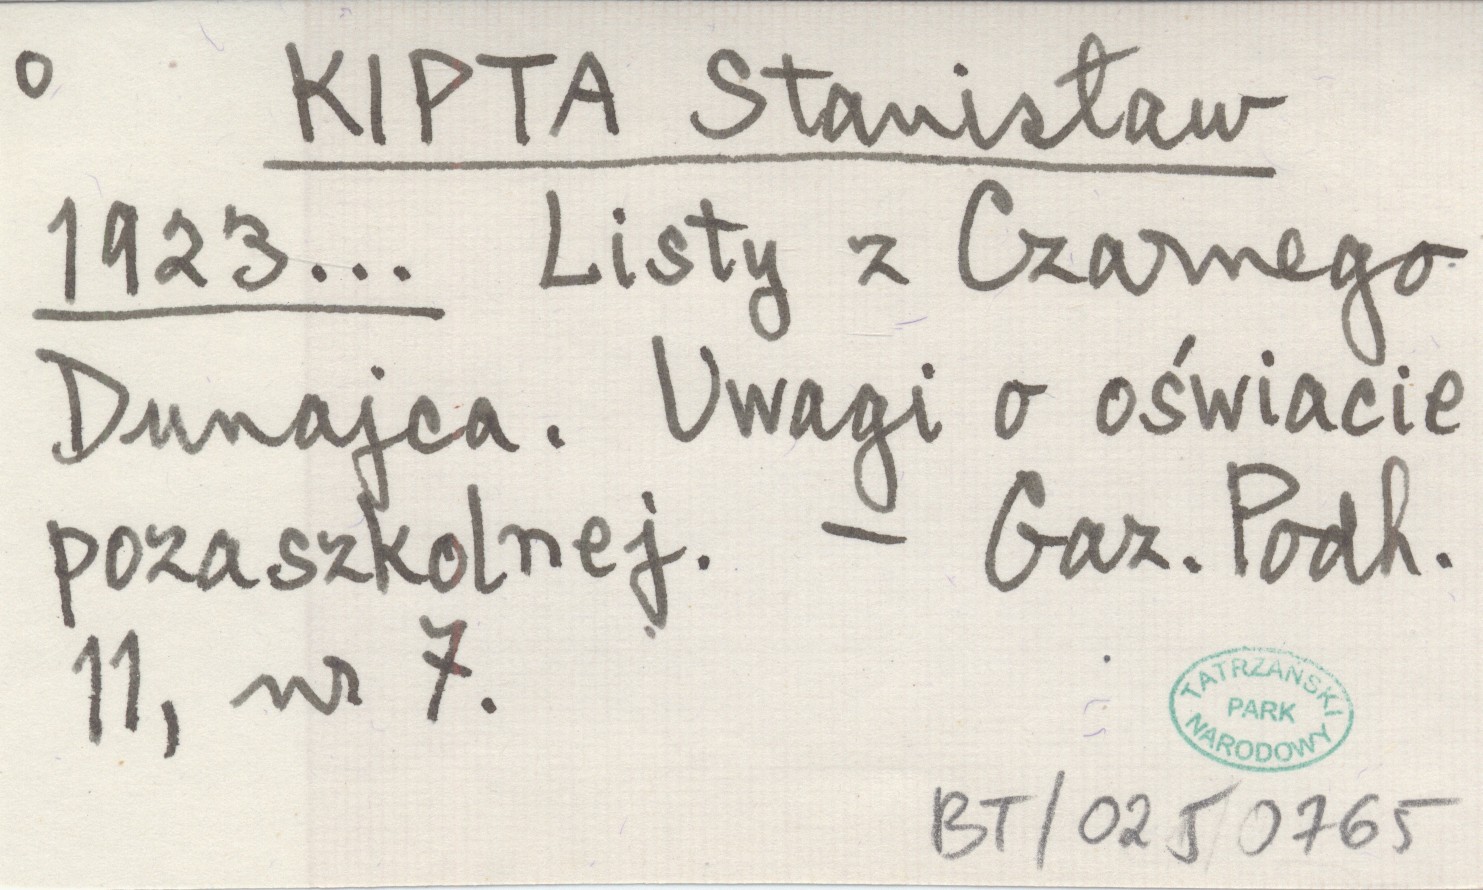 o KIPTA Stanisław
1923... Listy z Czarnego
Dunajca. Uwagi o oświacie
pozaszkolnej. – Gaz. Podh.
11, nr 7.
TATRZAŃSKI
PARK
NARODOWY
BT/025/0765